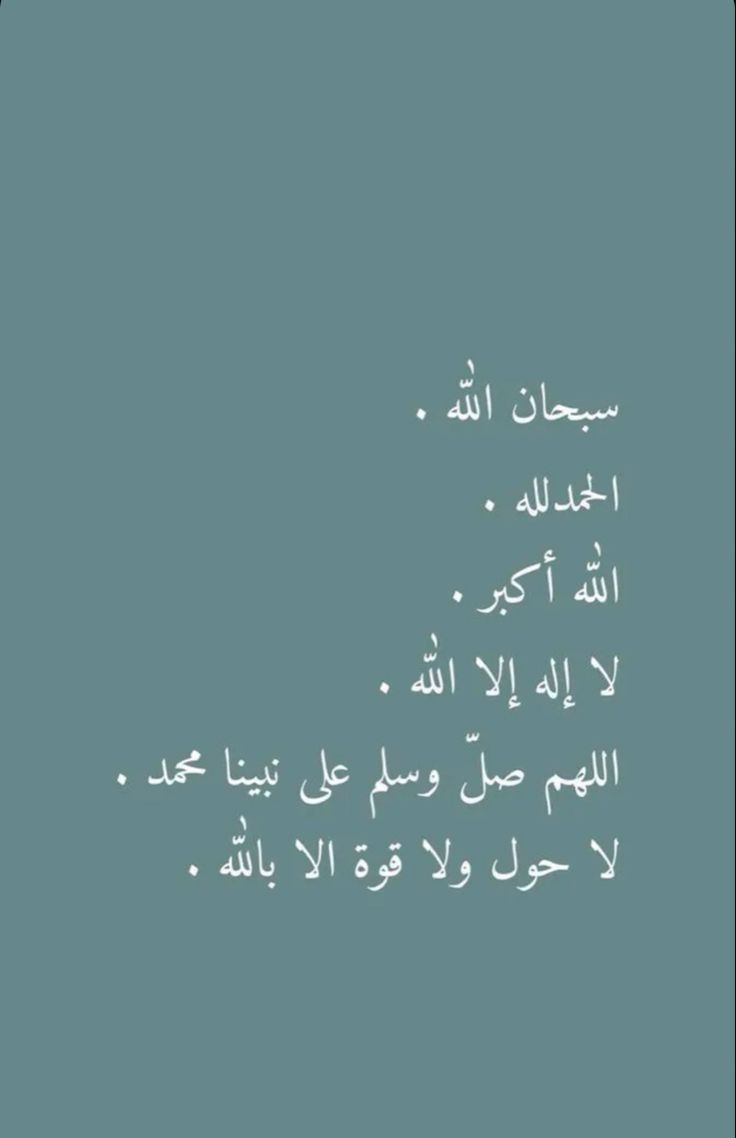 سبحان الله .
الحمدلله .
الله أكبر .
لا إله إلا الله .
اللهم صلّ وسلم على نبينا محمد .
لا حول ولا قوة الا بالله .